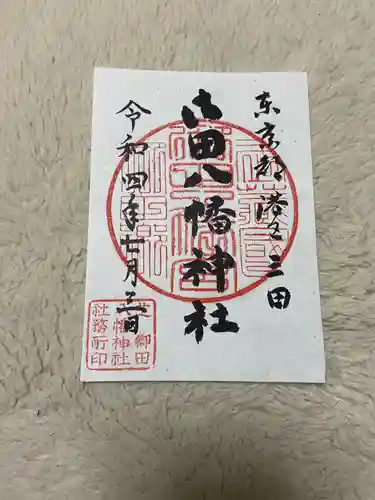 東京都港区三田
御田八幡神社
令和四年七月三日
御田
八幡神社
社務所印